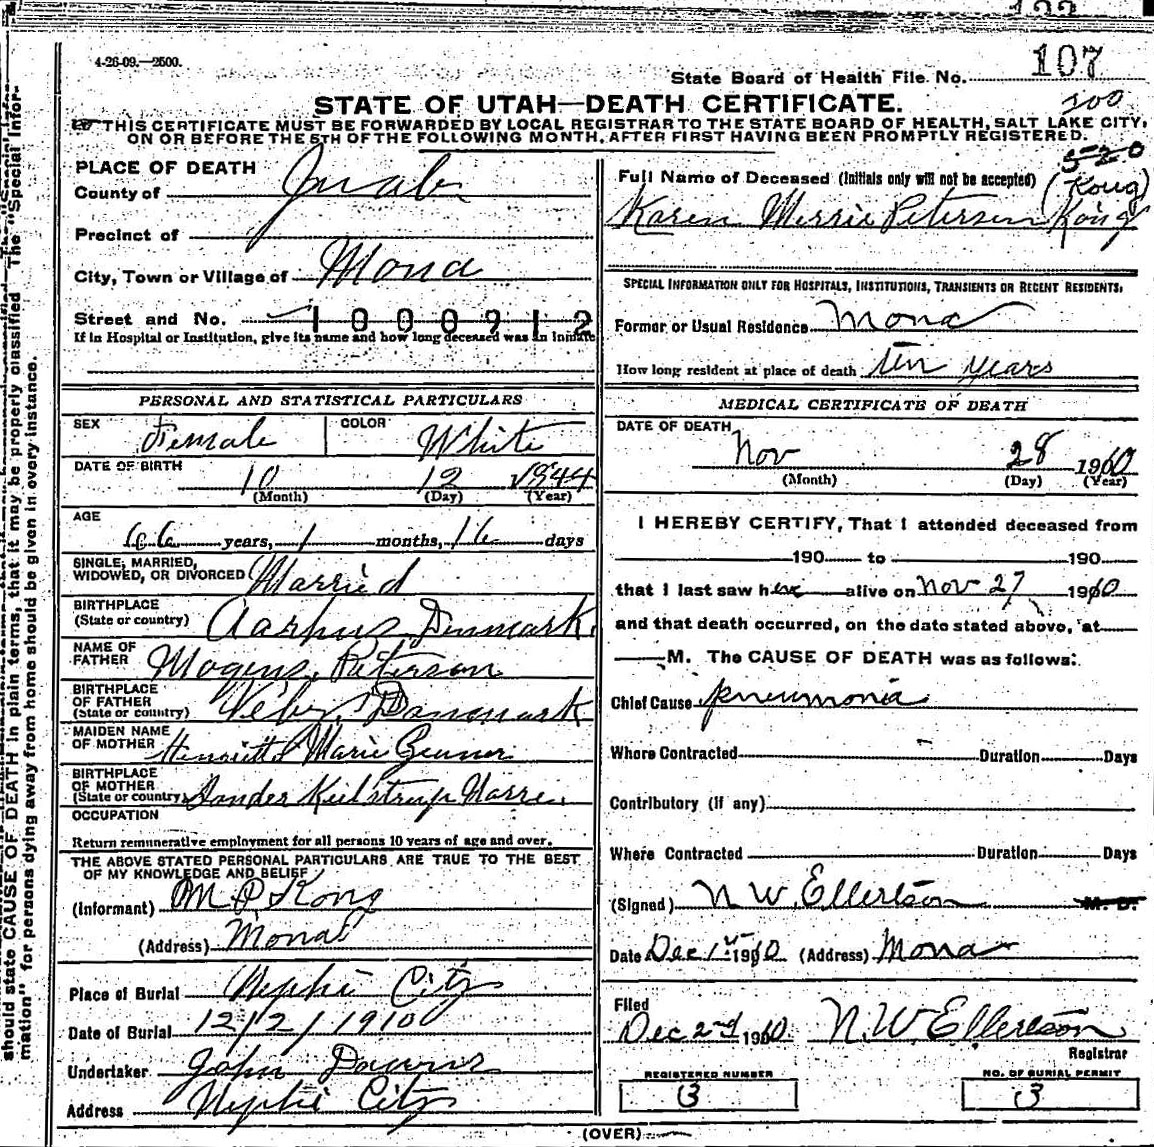 107
4-26-09.—2500.
State Board of Health File No. 107
STATE OF UTAH—DEATH CERTIFICATE.
200
THIS CERTIFICATE MUST BE FORWARDED BY LOCAL REGISTRAR TO THE STATE BOARD OF HEALTH, SALT LAKE CITY,
ON OR BEFORE THE 5TH OF THE FOLLOWING MONTH, AFTER FIRST HAVING BEEN PROMPTLY REGISTERED.
520
PLACE OF DEATH
County of Juab
Precinct of
City, Town or Village of Mona
Street and No. 1000912
If in Hospital or Institution, give its name and how long deceased was an inmate
Full Name of Deceased (Initials only will not be accepted) (Kong)
Karen Merrie Petersen Kong
SPECIAL INFORMATION ONLY FOR HOSPITALS, INSTITUTIONS, TRANSIENTS OR RECENT RESIDENTS.
Former or Usual Residence Mona
How long resident at place of death ten years
PERSONAL AND STATISTICAL PARTICULARS
SEX Female COLOR White
DATE OF BIRTH 10 12 1844
(Month) (Day) (Year)
AGE
66 years, 1 months, 16 days
SINGLE, MARRIED,
WIDOWED, OR DIVORCED Married
BIRTHPLACE
(State or country) Aarhus Denmark
NAME OF
FATHER Mogens Peterson
BIRTHPLACE
OF FATHER
(State or country) Danmark
MAIDEN NAME
OF MOTHER Marie
BIRTHPLACE
OF MOTHER
(State or country)
OCCUPATION
Return remunerative employment for all persons 10 years of age and over.
THE ABOVE STATED PERSONAL PARTICULARS ARE TRUE TO THE BEST
OF MY KNOWLEDGE AND BELIEF
(Informant) M P Kong
(Address) Mona
Place of Burial Nephi City
Date of Burial 12/2/1910
Undertaker John Downs
Address Nephi City
MEDICAL CERTIFICATE OF DEATH
DATE OF DEATH
Nov 28 1910
(Month) (Day) (Year)
I HEREBY CERTIFY, That I attended deceased from
190 to 190
that I last saw her alive on Nov 27 1910
and that death occurred, on the date stated above, at
M. The CAUSE OF DEATH was as follows:
Chief Cause pneumonia
Where Contracted Duration Days
Contributory (if any)
Where Contracted Duration Days
(Signed) N W. Ellertson M. D.
Date Dec 1st 1910 (Address) Mona
Filed
Dec 2nd 1910 N. W. Ellertson
Registrar
REGISTERED NUMBER NO. OF BURIAL PERMIT
3 3
(OVER)
should state CAUSE OF DEATH in plain terms, that it may be properly classified The "Special Infor-
mation" for persons dying away from home should be given in every instance.